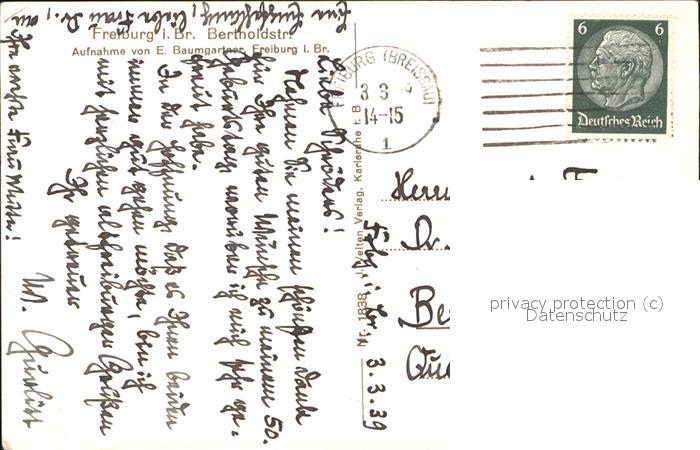 Freiburg i. Br. Bertholdstr.
Aufnahme von E. Baumgartner, Freiburg i. Br.
Liebe Schröders!
Nehmen Sie meinen schönsten Dank
für Ihre guten Wünsche zu meinem 50.
Geburtstag, worüber ich mich sehr ge-
freut habe.
In der Hoffnung, daß es Ihnen beiden
immer gut gehen möchte, bin ich
mit herzlichen Grüßen
Ihr getreuer
W. Gurlitt
Eine Empfehlung, liebe Frau Dr., an
Ihre werte Frau Mutter!
FREIBURG (BREISGAU)
3 3
14-15
1
6 6
Deutsches Reich
Nr. 1838 J. Velten Verlag, Karlsruhe i. B.
Frbg. i. Br. 3.3.39
Herrn
Dr.
Be
Que
privacy protection (c)
Datenschutz